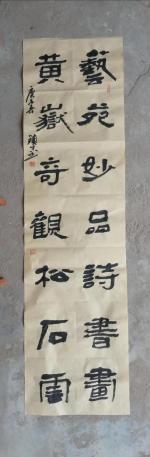 藝苑妙品詩書畫
黃嶽奇觀松石雲